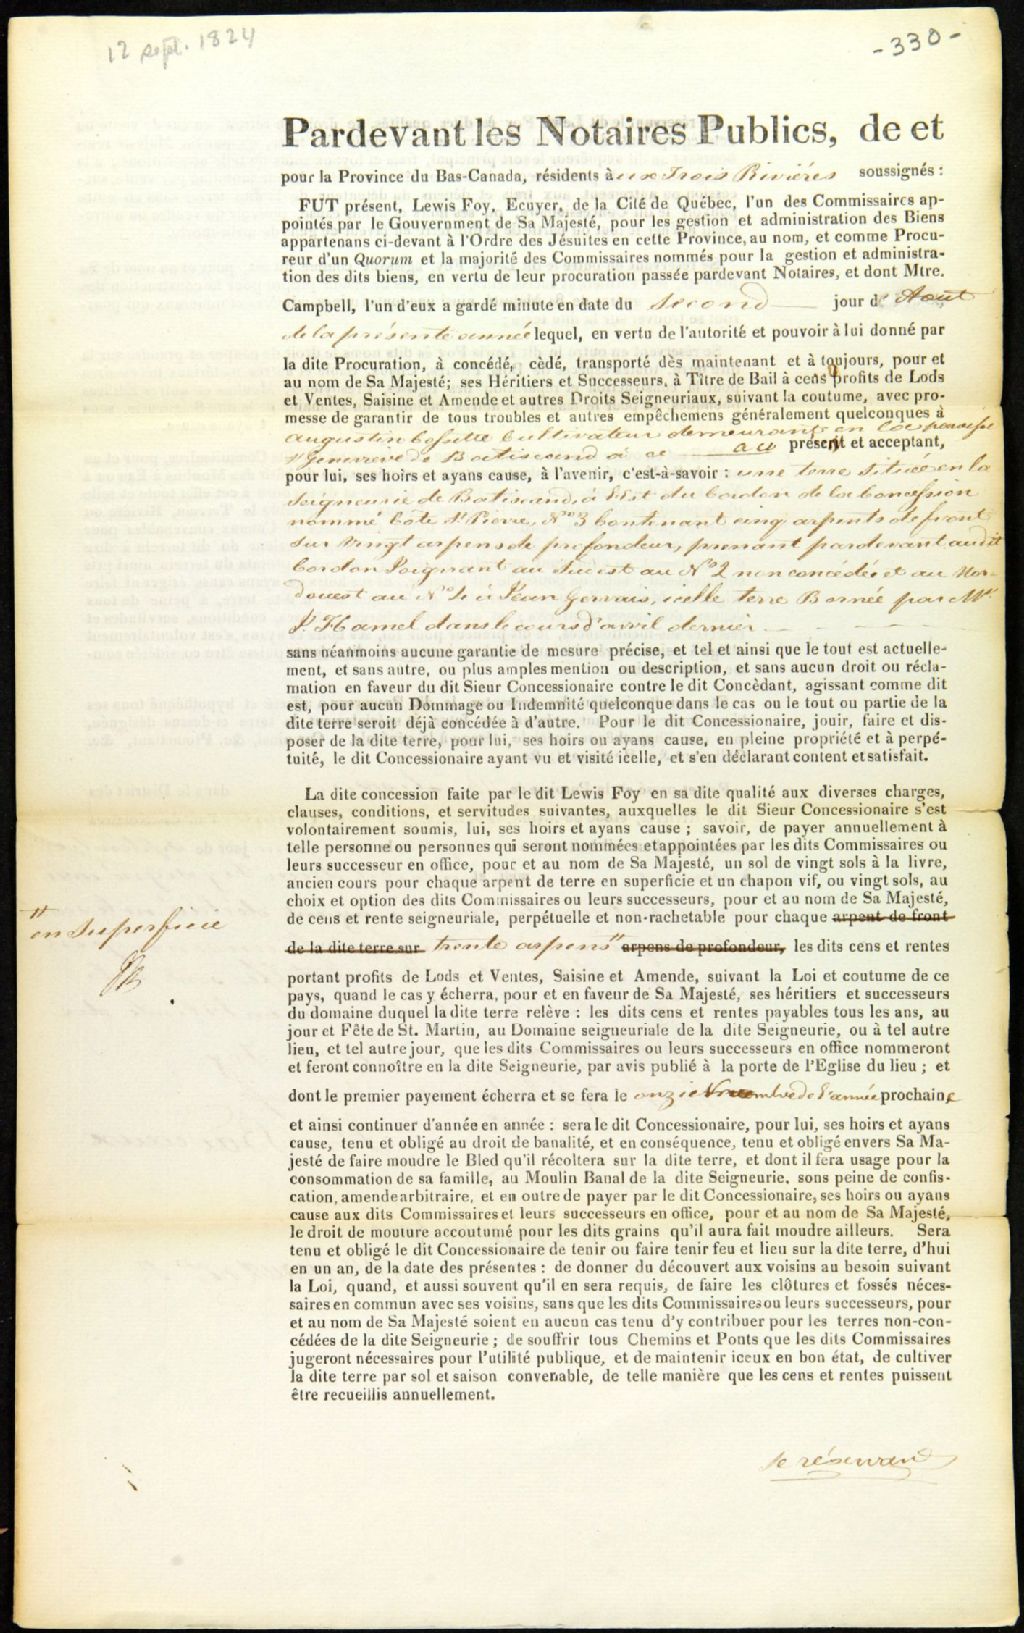 12 sept. 1824
-330-
Pardevant les Notaires Publics, de et
pour la Province du Bas-Canada, résidents à ux Trois Riviéres soussignés :
FUT présent, Lewis Foy, Ecuyer, de la Cité de Québec, l'un des Commissaires ap-
pointés par le Gouvernment de Sa Majesté, pour les gestion et administration des Biens
appartenans ci-devant à l'Ordre des Jésuites en cette Province, au nom, et comme Procu-
reur d'un Quorum et la majorité des Commissaires nommés pour la gestion et administra-
tion des dits biens, en vertu de leur procuration passée pardevant Notaires, et dont Mtre.
Campbell, l'un d'eux a gardé minute en date du second jour d' Aout
de la présente année lequel, en vertu de l'autorité et pouvoir à lui donné par
la dite Procuration, à concédé, cèdé, transporté dès maintenant et à toujours, pour et
au nom de Sa Majesté; ses Héritiers et Successeurs, à Titre de Bail à cens profits de Lods
et Ventes, Saisine et Amende et autres Droits Seigneuriaux, suivant la coutume, avec pro-
messe de garantir de tous troubles et autres empêchemens généralement quelconques à
augustin Cultivateur demeurant en la paroisse
Ste Genevieve de Batiscand à ce au présent et acceptant,
pour lui, ses hoirs et ayans cause, à l'avenir, c'est-à-savoir : une terre située en la
seigneurie de Batiscand, à l'Est du cordon de la Concession
nommé Cote St Pierre, No 3 Contenant cinq arpents de front
sur vingt arpens de profondeur, prenant pardevant audit
Cordon Joignant au Sudest au No 2 non concédée et au Nor-
douest au No 4 à Jean Gervais, icelle terre Bornée par Mr.
P. Hamel dans le cours d'avril dernier
sans néanmoins aucune garantie de mesure précise, et tel et ainsi que le tout est actuelle-
ment, et sans autre, ou plus amples mention ou description, et sans aucun droit ou récla-
mation en faveur du dit Sieur Concessionaire contre le dit Concèdant, agissant comme dit
est, pour aucun Dommage ou Indemnité quelconque dans le cas ou le tout ou partie de la
dite terre seroit déjà concédée à d'autre. Pour le dit Concessionaire, jouir, faire et dis-
poser de la dite terre, pour lui, ses hoirs ou ayans cause, en pleine propriété et à perpé-
tuité, le dit Concessionaire ayant vu et visité icelle, et s'en déclarant content et satisfait.
La dite concession faite par le dit Lewis Foy en sa dite qualité aux diverses charges,
clauses, conditions, et servitudes suivantes, auxquelles le dit Sieur Concessionaire s'est
volontairement soumis, lui, ses hoirs et ayans cause ; savoir, de payer annuellement à
telle personne ou personnes qui seront nommées et appointées par les dits Commissaires ou
leurs successeur en office, pour et au nom de Sa Majesté, un sol de vingt sols à la livre,
ancien cours pour chaque arpent de terre en superficie et un chapon vif, ou vingt sols, au
choix et option des dits Commissaires ou leurs successeurs, pour et au nom de Sa Majesté,
de cens et rente seigneuriale, perpétuelle et non-rachetable pour chaque arpent de front
" en superficie
de la dite terre sur trente arpens " arpens de profondeur, les dits cens et rentes
portant profits de Lods et Ventes, Saisine et Amende, suivant la Loi et coutume de ce
pays, quand le cas y écherra, pour et en faveur de Sa Majesté, ses héritiers et successeurs
du domaine duquel la dite terre relève : les dits cens et rentes payables tous les ans, au
jour et Fête de St. Martin, au Domaine seigneuriale de la dite Seigneurie, ou à tel autre
lieu, et tel autre jour, que les dits Commissaires ou leurs successeurs en office nommeront
et feront connoître en la dite Seigneurie, par avis publié à la porte de l'Eglise du lieu ; et
dont le premier payement écherra et se fera le onzie Novembre de l'année prochaine
et ainsi continuer d'année en année : sera le dit Concessionaire, pour lui, ses hoirs et ayans
cause, tenu et obligé au droit de banalité, et en conséquence, tenu et obligé envers Sa Ma-
jesté de faire moudre le Bled qu'il récoltera sur la dite terre, et dont il fera usage pour la
consommation de sa famille, au Moulin Banal de la dite Seigneurie, sous peine de confis-
cation, amende arbitraire, et en outre de payer par le dit Concessionaire, ses hoirs ou ayans
cause aux dits Commissaires et leurs successeurs en office, pour et au nom de Sa Majesté,
le droit de mouture accoutumé pour les dits grains qu'il aura fait moudre ailleurs. Sera
tenu et obligé le dit Concessionaire de tenir ou faire tenir feu et lieu sur la dite terre, d'hui
en un an, de la date des présentes : de donner du découvert aux voisins au besoin suivant
la Loi, quand, et aussi souvent qu'il en sera requis, de faire les clôtures et fossés néces-
saires en commun avec ses voisins, sans que les dits Commissaires ou leurs successeurs, pour
et au nom de Sa Majesté soient en aucun cas tenu d'y contribuer pour les terres non-con-
cédées de la dite Seigneurie ; de souffrir tous Chemins et Ponts que les dits Commissaires
jugeront nécessaires pour l'utilité publique, et de maintenir iceux en bon état, de cultiver
la dite terre par sol et saison convenable, de telle manière que les cens et rentes puissent
être recueillis annuellement.
se réservant